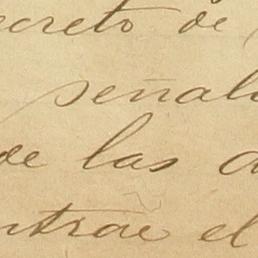 creto de
señal
de las a
ntrae el